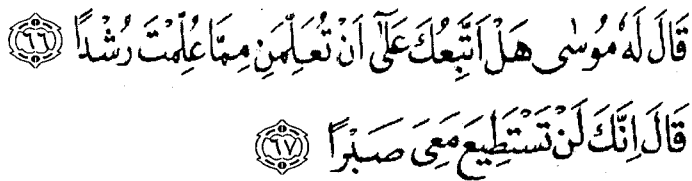 قَالَ لَهٗ مُوْسٰى هَلْ اَتَّبِعُكَ عَلٰٓى اَنْ تُعَلِّمَنِ مِمَّا عُلِّمْتَ رُشْدًا ﴿٦٦﴾
قَالَ اِنَّكَ لَنْ تَسْتَطِيْعَ مَعِىَ صَبْرًا ﴿٦٧﴾